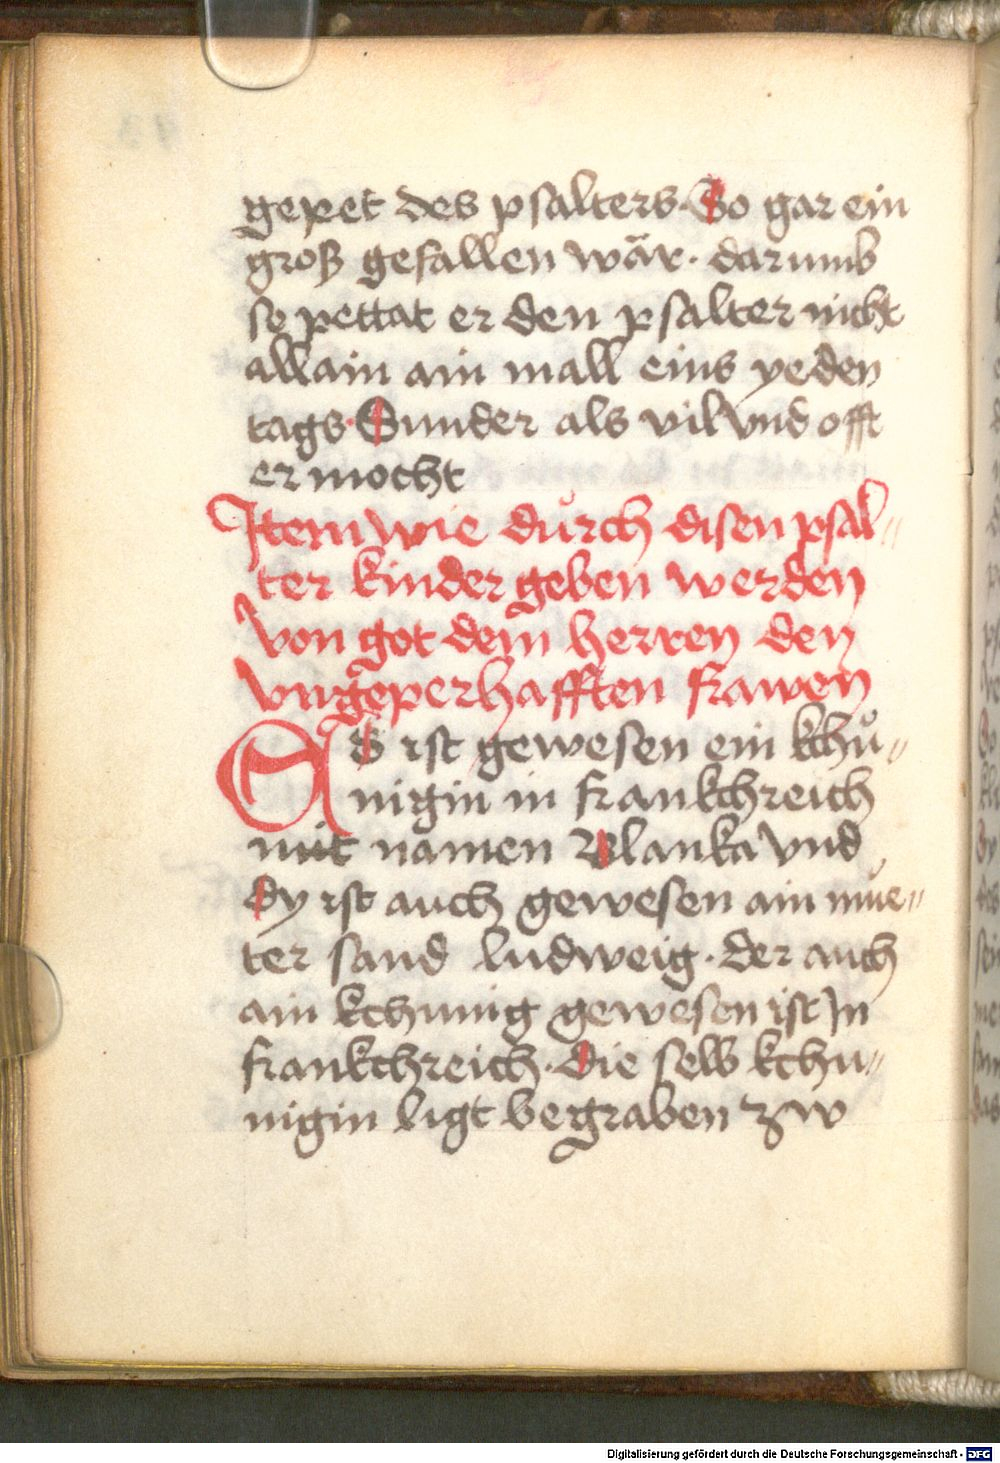 gepet des psalters. So gar ein
groß gefallen wär. darumb
so pettat er den psalter nicht
allain ain mall eins yeden
tags. Sunder als vil vnd offt
er mocht
Item wie důrch disen psal„
ter kinder geben werden
von got dem herren den
vngeperhafften frawen
Es ist gewesen ein kchů„
nigin in frankchreich
mit namen Blanka vnd
dy ist auch gewesen ain mue„
ter sand ludweig. der auch
ain kchunig gewesen ist In
frankchreich. die selb kchu„
nigin ligt begraben zw
Digitalisierung gefördert durch die Deutsche Forschungsgemeinschaft - DFG